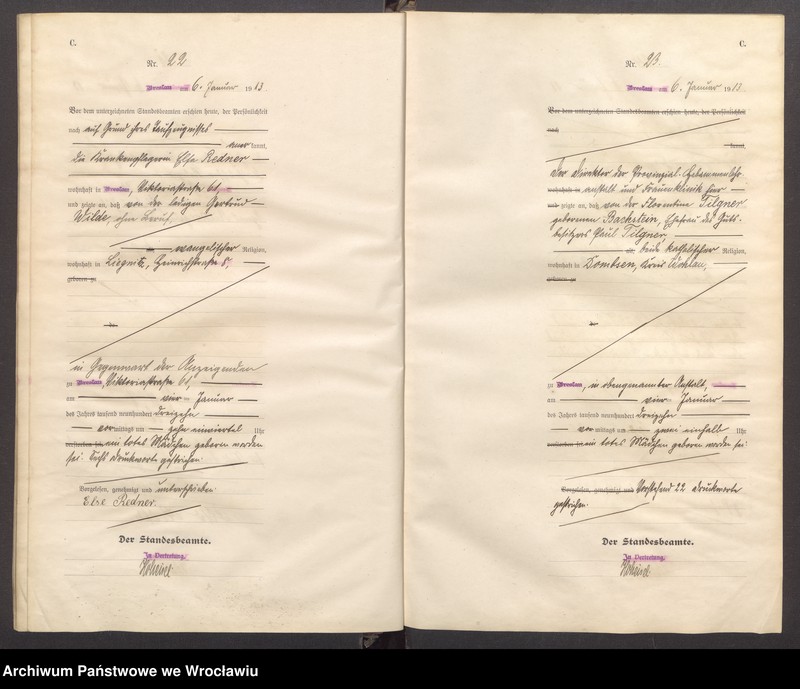 C.
Nr. 22
Breslau am 6. Januar 1913
Vor dem unterzeichneten Standesbeamten erschien heute, der Persönlichkeit
nach auf Grund ihres Taufzeugnisses
kannt,
die Krankenpflegerin Else Redner
wohnhaft in Breslau, Viktoriastraße
und zeigte an, daß von der ledigen Gertrud
Wilde, ohne Beruf,
evangelischer Religion,
wohnhaft in Liegnitz, Heinrichstraße
geboren zu
der
in Gegenwart der Anzeigenden
zu Breslau, Viktoriastraße
am vier Januar
des Jahres tausend neunhundert dreizehn
vormittags um zehn einviertel Uhr
ein totes Mädchen geboren worden
sei. Sechs Druckworte gestrichen.
Vorgelesen, genehmigt und unterschrieben
Else Redner.
Der Standesbeamte.
In Vertretung.
C.
Nr. 23.
Breslau am 6. Januar 1913.
Vor dem unterzeichneten Standesbeamten erschien heute, der Persönlichkeit
nach
kannt,
Der Direktor der Provinzial-Hebammenlehr-
wohnhaft in anstalt und Frauenklinik hier
und zeigte an, daß von der Florentine Tilgner
geborenen Backstein, Ehefrau des Guts-
besitzers Paul Tilgner,
beide katholischer Religion,
wohnhaft in Dombsen, Kreis Wohlau,
geboren zu
der
zu Breslau, in obengenannter Anstalt,
am vier Januar
des Jahres tausend neunhundert dreizehn
vormittags um zwei einhalb Uhr
ein totes Mädchen geboren worden sei.
Vorgelesen, genehmigt und Vorstehend 22 Druckworte
gestrichen.
Der Standesbeamte.
In Vertretung.
Archiwum Państwowe we Wrocławiu